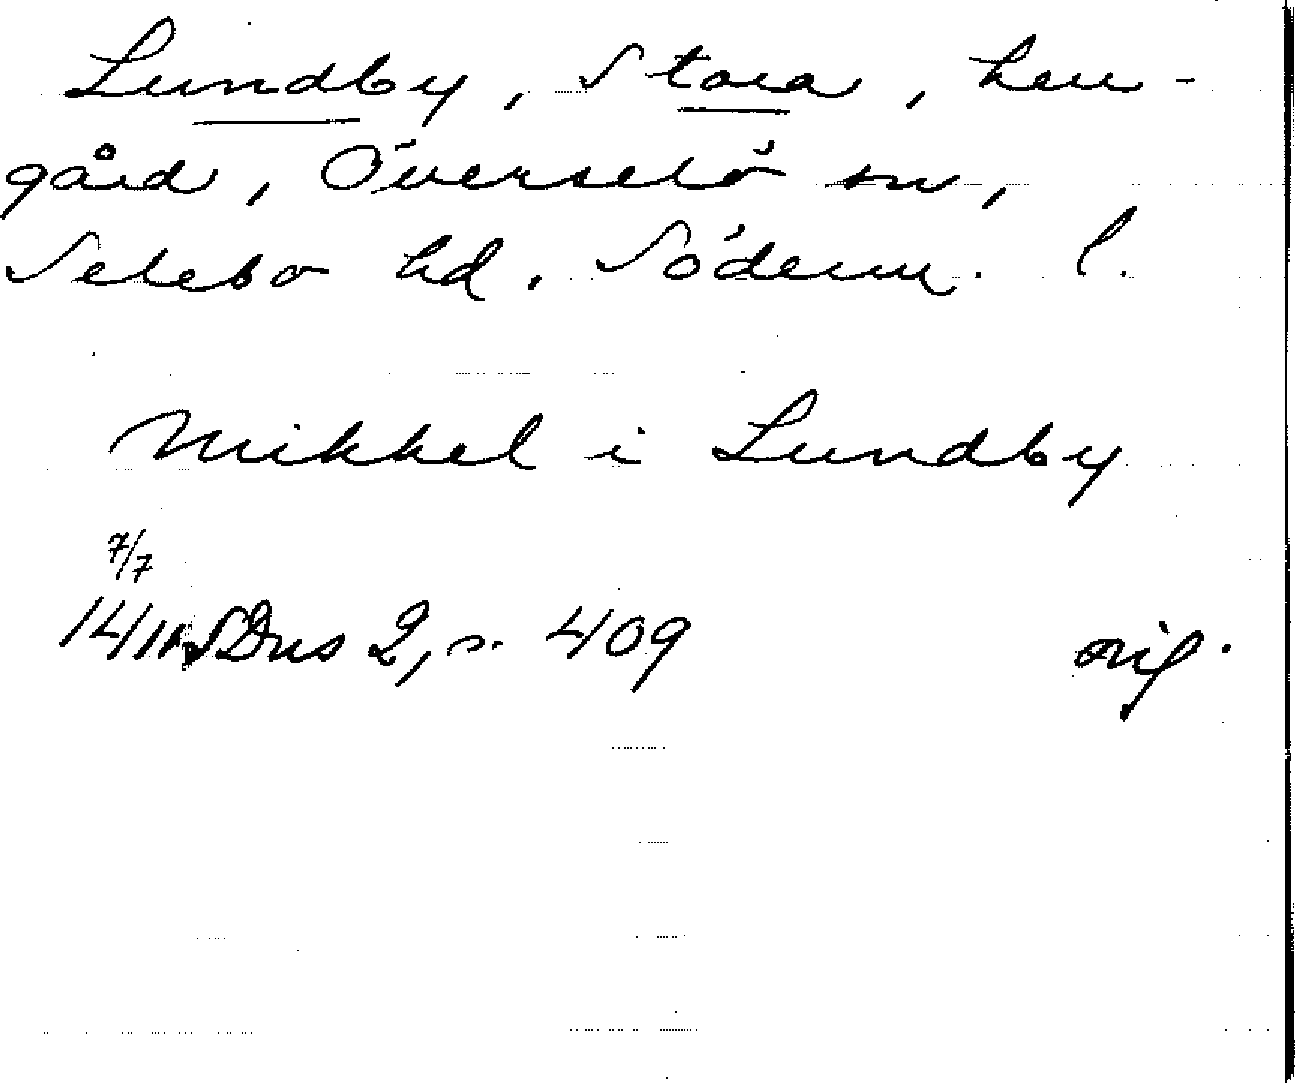 Lundby, Stora, herr-
gård, Överselö sn,
Selebo hd. Söderm. l.
Mikkel i Lundby
7/7
SDns 2, s. 409 orig.